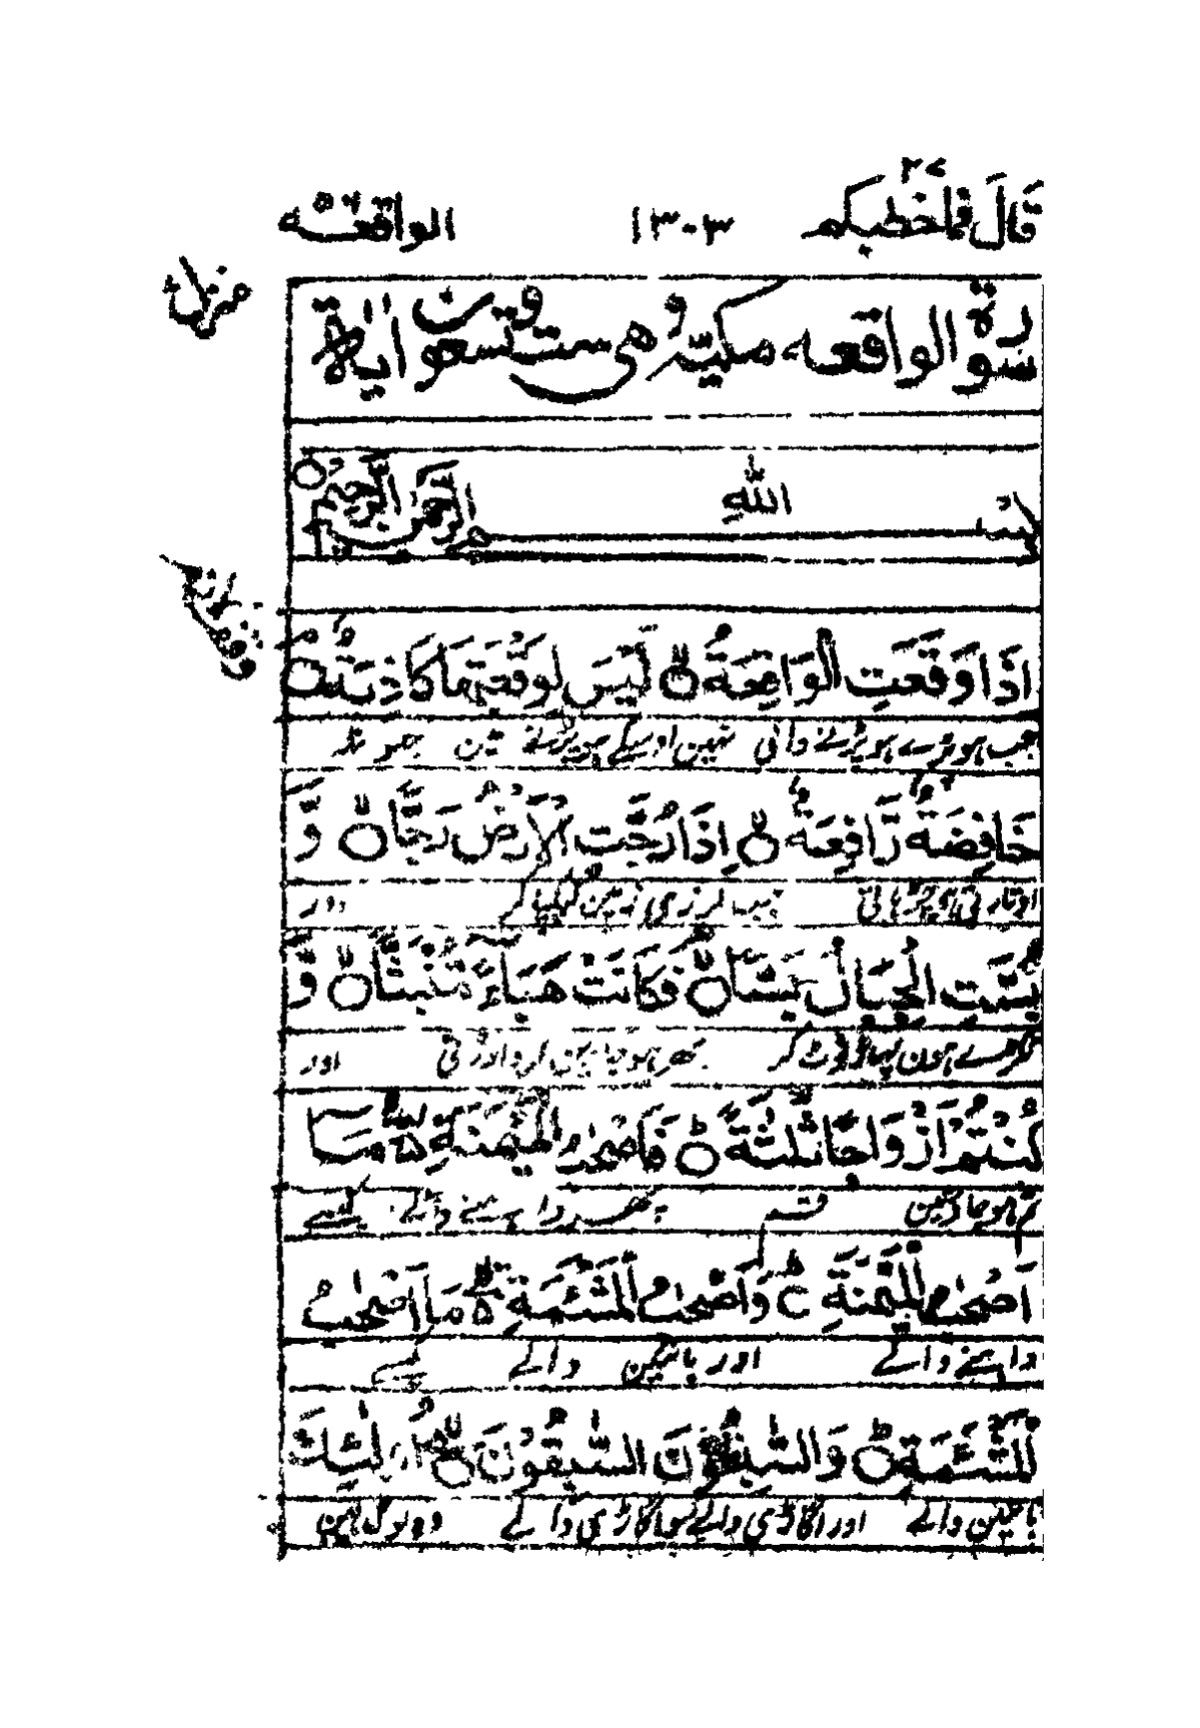 ۲۷
قَالَ فَمَا خَطْبُكُم ۱۳۰۳ الواقعه ۵۶
منزل
سورة الواقعه مكيّة وهى ست وتسعون اياة
بسم اللهِ الرَّحْمٰنِ الرَّحِيْمِ
وقف لازم
اِذَا وَقَعَتِ الْوَاقِعَةُ لَيْسَ لِوَقْعَتِهَا كَاذِبَةٌ
جب ہو پڑے ہو پڑنے والی نہیں اوسکے ہو پڑنے میں جھوٹھ
خَافِضَةٌ رَّافِعَةٌ اِذَا رُجَّتِ الْاَرْضُ رَجًّا وَّ
اوتارتی ہے چڑہاتی جب لرزے زمین کپکپا کر اور
بُسَّتِ الْجِبَالُ بَسًّا فَكَانَتْ هَبَآءً مُّنْبَثًّا وَّ
ٹکڑے ہون پہاڑ ٹوٹ کر پھر ہو جاوین گرد اوڑتی اور
كُنْتُمْ اَزْوَاجًا ثَلٰثَةً فَاَصْحٰبُ الْمَيْمَنَةِ مَآ
تم ہو جاؤ تین قسم پھر داہنے والے کیسے
اَصْحٰبُ الْمَيْمَنَةِ وَاَصْحٰبُ الْمَشْئَمَةِ مَا اَصْحٰبُ
داہنے والے اور بائیں والے کیسے
الْمَشْئَمَةِ وَالسّٰبِقُوْنَ السّٰبِقُوْنَ اُولٰٓئِكَ
بائیں والے اور اگاڑی والے سو اگاڑی والے وہ لوگ ہین